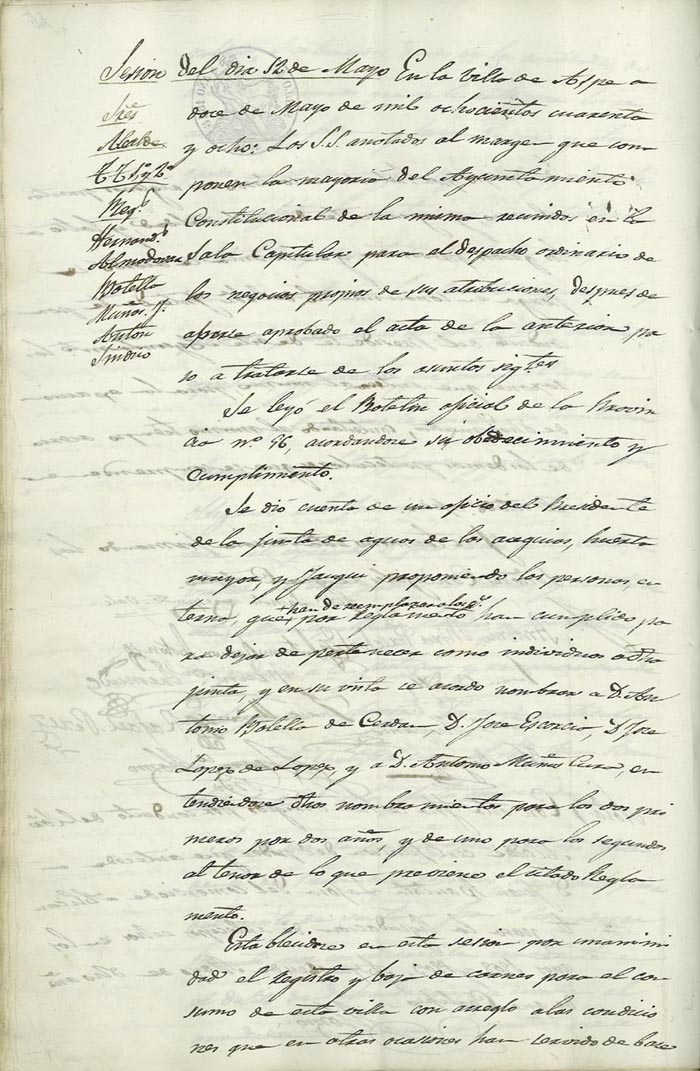 Sesion del dia 12 de Mayo En la Villa de Aspe a
Sres
Alcalde
TT 1º y 2º
Reg.s
Hernand.s
Almodovar
Botella
Muñoz
Anton
Sindico
doce de Mayo de mil ochocientos cuarenta
y ocho: Los S.S. anotados al margen que com
ponen la mayoria del Ayuntamiento
Constitucional de la misma reunidos en la
Sala Capitular para el despacho ordinario de
los negocios propios de sus atribuciones, despues de
aberse aprobado el acta de la anterior pa
so a tratarse de los asuntos sigtes
Se leyó el Boletin oficial de la Provin
cia nº 56, acordandose su obedecimiento y
cumplimento.
Se dió cuenta de un oficio del Presidente
de la junta de aguas de las acequias, huerta
mayor, y Fauqui proponiendo las personas, en
terna, que + han de remplazar a los q.e
por Reglamento han cumplido pa
ra dejar de pertenecer como individuos a dha
junta, y en su vista se acordo nombrar a D. An
tonio Botella de Cerdan, D. Jose Escorcio, D. Jose
Lopez de Lopez, y a D. Antonio Muñoz Cura, en
tendiendose dhos nombramientos para los dos pri
meros por dos años, y de uno para los segundos
al tenor de lo que previene el citado Regla
mento.
Establecidose en esta sesion por unanimi
dad el registro y baja de carnes para el con
sumo de esta villa con arreglo a las condicio
nes que en otras ocasiones han servido de base